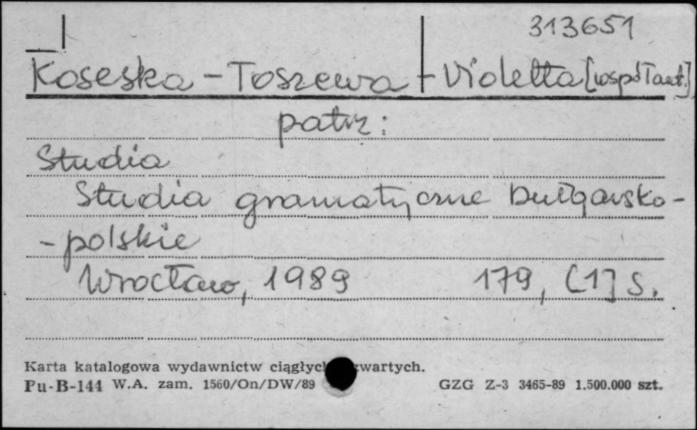 313651
Koseska-Toszewa Violetta [współaut.]
patrz:
Studia
Studia gramatyczne bułgarsko-
-polskie
Wrocław, 1989 179, [1] s.
Karta katalogowa wydawnictw ciągłyc wartych.
Pu-B-144 W.A. zam. 1560/On/DW/89 GZG Z-3 3465-89 1.500.000 szt.